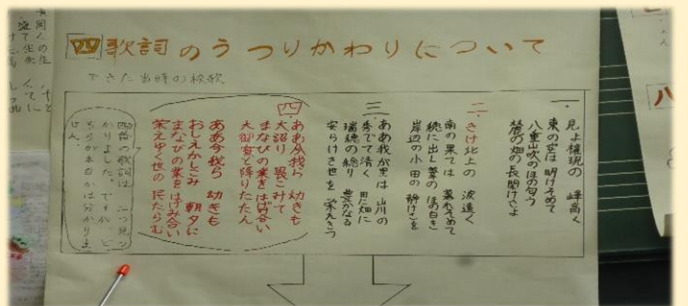 四 歌詞のうつりかわりについて
できた当時の校歌
一、
見よ権現の 峰高く
東の空は 明けそめて
八重山吹のほの匂う
の畑の 長閑けさよ
二、
さけ北上の 波遠く
南の果ては 暮れそめて
穂に出し葦の ほの白き
岸辺の小田の 静けさを
三
ああ我が里は 山川の
秀でて清く 田に畑に
瑞穂の稔り 豊かなる
安らけき世を 栄えきつ
四
ああ今我ら 幼きも
大詔り 畏こみて
まなびの業をはげみ合い
大御宝と降りたたん
ああ今我ら 幼きも
おしえかしこみ 朝夕に
まなびの業をはげみ合い
栄えゆく世の 民たらむ
四番の歌詞は、二つ見つ
かりました。ですが、ど
ちらが本当かは分かりま
せん。
八